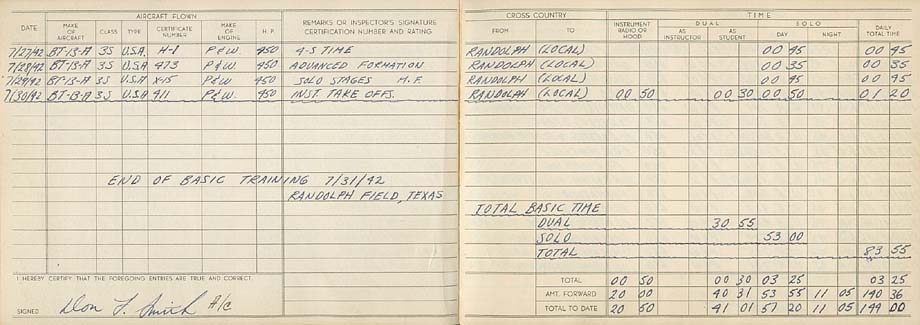 AIRCRAFT FLOWN
DATE MAKE OF AIRCRAFT CLASS TYPE CERTIFICATE NUMBER MAKE OF ENGINE H. P. REMARKS OR INSPECTOR'S SIGNATURE CERTIFICATION NUMBER AND RATING
7/27/42 BT-13-A 3S U.S.A. H-1 P&W. 450 4-S TIME
7/28/42 BT-13-A 3S U.S.A 473 P&W. 450 ADVANCED FORMATION
7/29/42 BT-13-A 3S U.S.A X-15 P&W. 450 SOLO STAGES H.F.
7/30/42 BT-13-A 3S U.S.A 411 P&W. 450 INST. TAKE OFFS.
END OF BASIC TRAINING 7/31/42
RANDOLPH FIELD, TEXAS
I HEREBY CERTIFY THAT THE FOREGOING ENTRIES ARE TRUE AND CORRECT.
SIGNED Don F. Smith A/C
CROSS COUNTRY TIME
FROM TO INSTRUMENT RADIO OR HOOD DUAL SOLO DAILY TOTAL TIME
AS INSTRUCTOR AS STUDENT DAY NIGHT
RANDOLPH (LOCAL) 00 45 00 45
RANDOLPH (LOCAL) 00 35 00 35
RANDOLPH (LOCAL) 00 45 00 45
RANDOLPH (LOCAL) 00 50 00 30 00 50 01 20
TOTAL BASIC TIME
DUAL 30 55
SOLO 53 00
TOTAL 83 55
TOTAL 00 50 00 30 03 25 03 25
AMT. FORWARD 20 00 40 31 53 55 11 05 140 36
TOTAL TO DATE 20 50 41 01 57 20 11 05 144 00